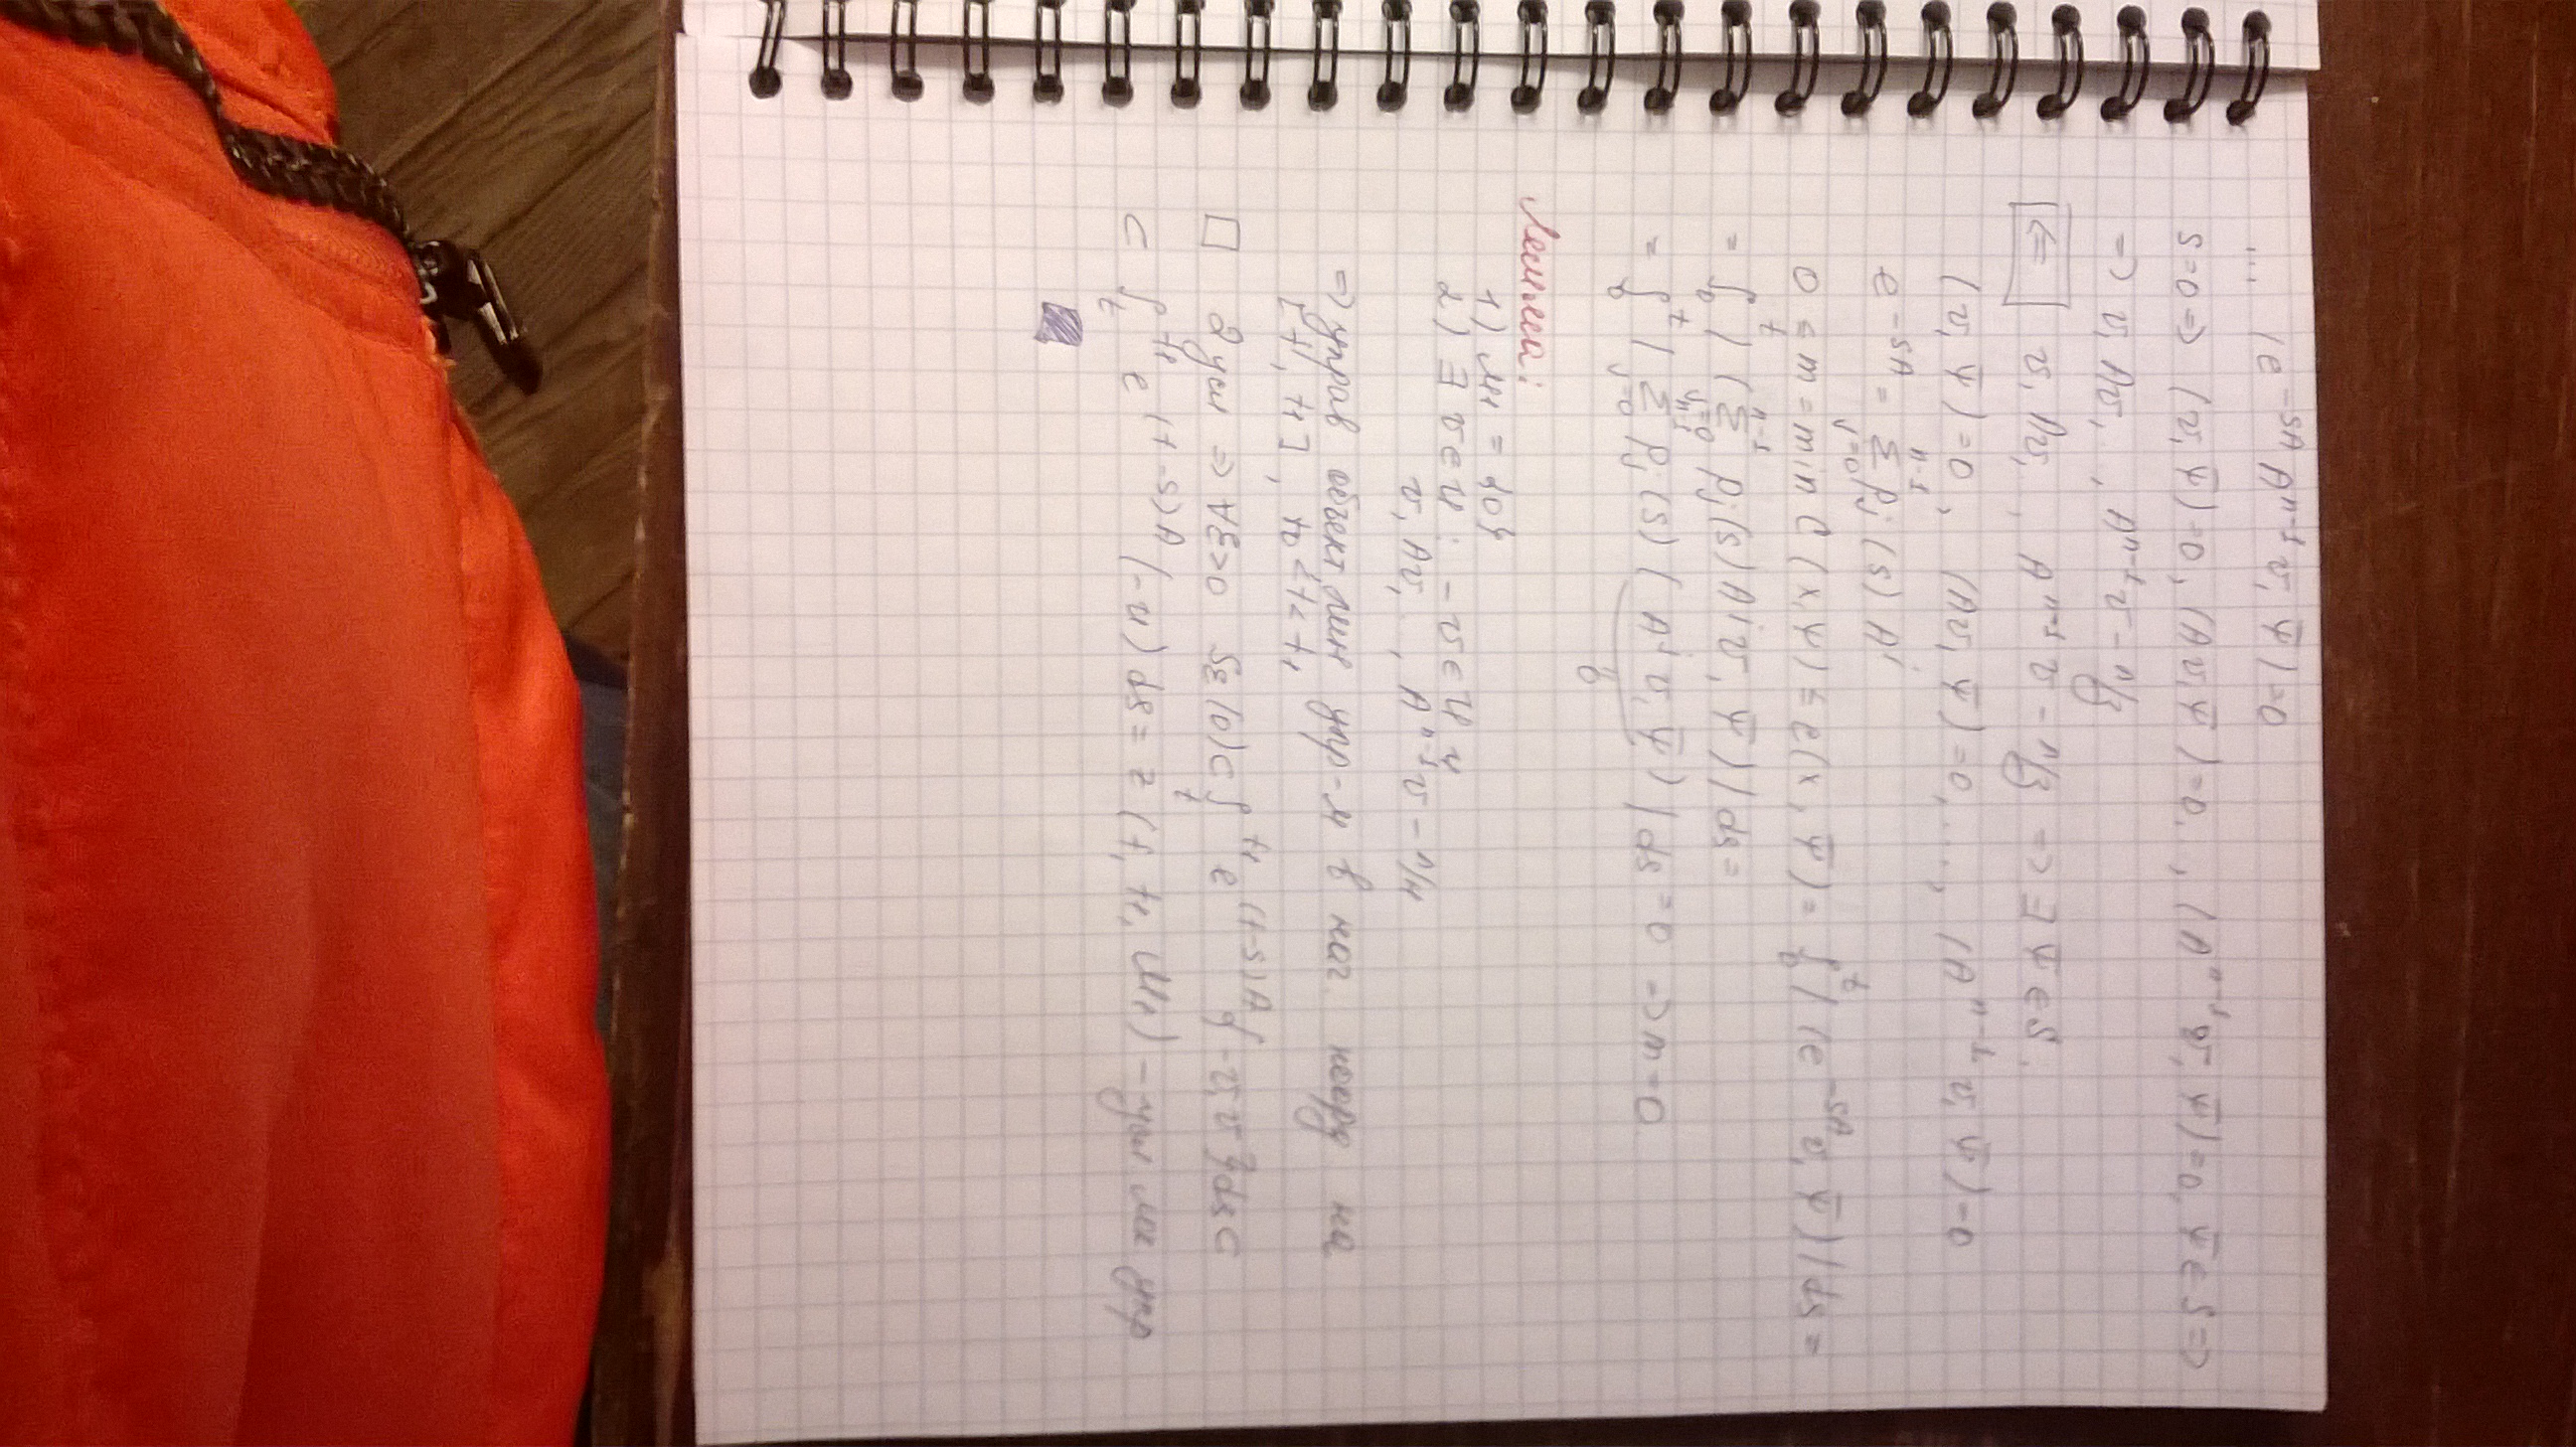 ... (e^{-sA} A^{n-1} v, ψ̄) = 0
s=0 => (v, ψ̄) = 0, (Av, ψ̄) = 0, ..., (A^{n-1} v, ψ̄) = 0, ψ̄ ∈ S =>
=> v, Av, ..., A^{n-1} v - л/з
<= v, Av, ..., A^{n-1} v - л/з => ∃ ψ̄ ∈ S:
(v, ψ̄) = 0, (Av, ψ̄) = 0, ..., (A^{n-1} v, ψ̄) = 0
e^{-sA} = Σ_{j=0}^{n-1} p_j(s) A^j
0 ≤ m = min C(x, ψ) ≤ c(x, ψ̄) = ∫_0^t |(e^{-sA} v, ψ̄)| ds =
= ∫_0^t |(Σ_{j=0}^{n-1} p_j(s) A^j v, ψ̄)| ds =
= ∫_0^t |Σ_{j=0}^{n-1} p_j(s) (A^j v, ψ̄)| ds = 0 => m = 0
0
Лемма:
1) M_1 = {0}
2) ∃ v ∈ U : -v ∈ U и
v, Av, ..., A^{n-1} v - л/н
=> управ объект лин упр-м в нач. коорд на
[t, t_1], t_0 ≤ t < t_1
□ 2 усл => ∃ ε > 0 S_ε(0) ⊂ ∫_t^{t_1} e^{(t-s)A} {-v, v} ds ⊂
⊂ ∫_t^{t_1} e^{(t-s)A} (-u) ds = z(t, t_1, M_1) - усл лок упр